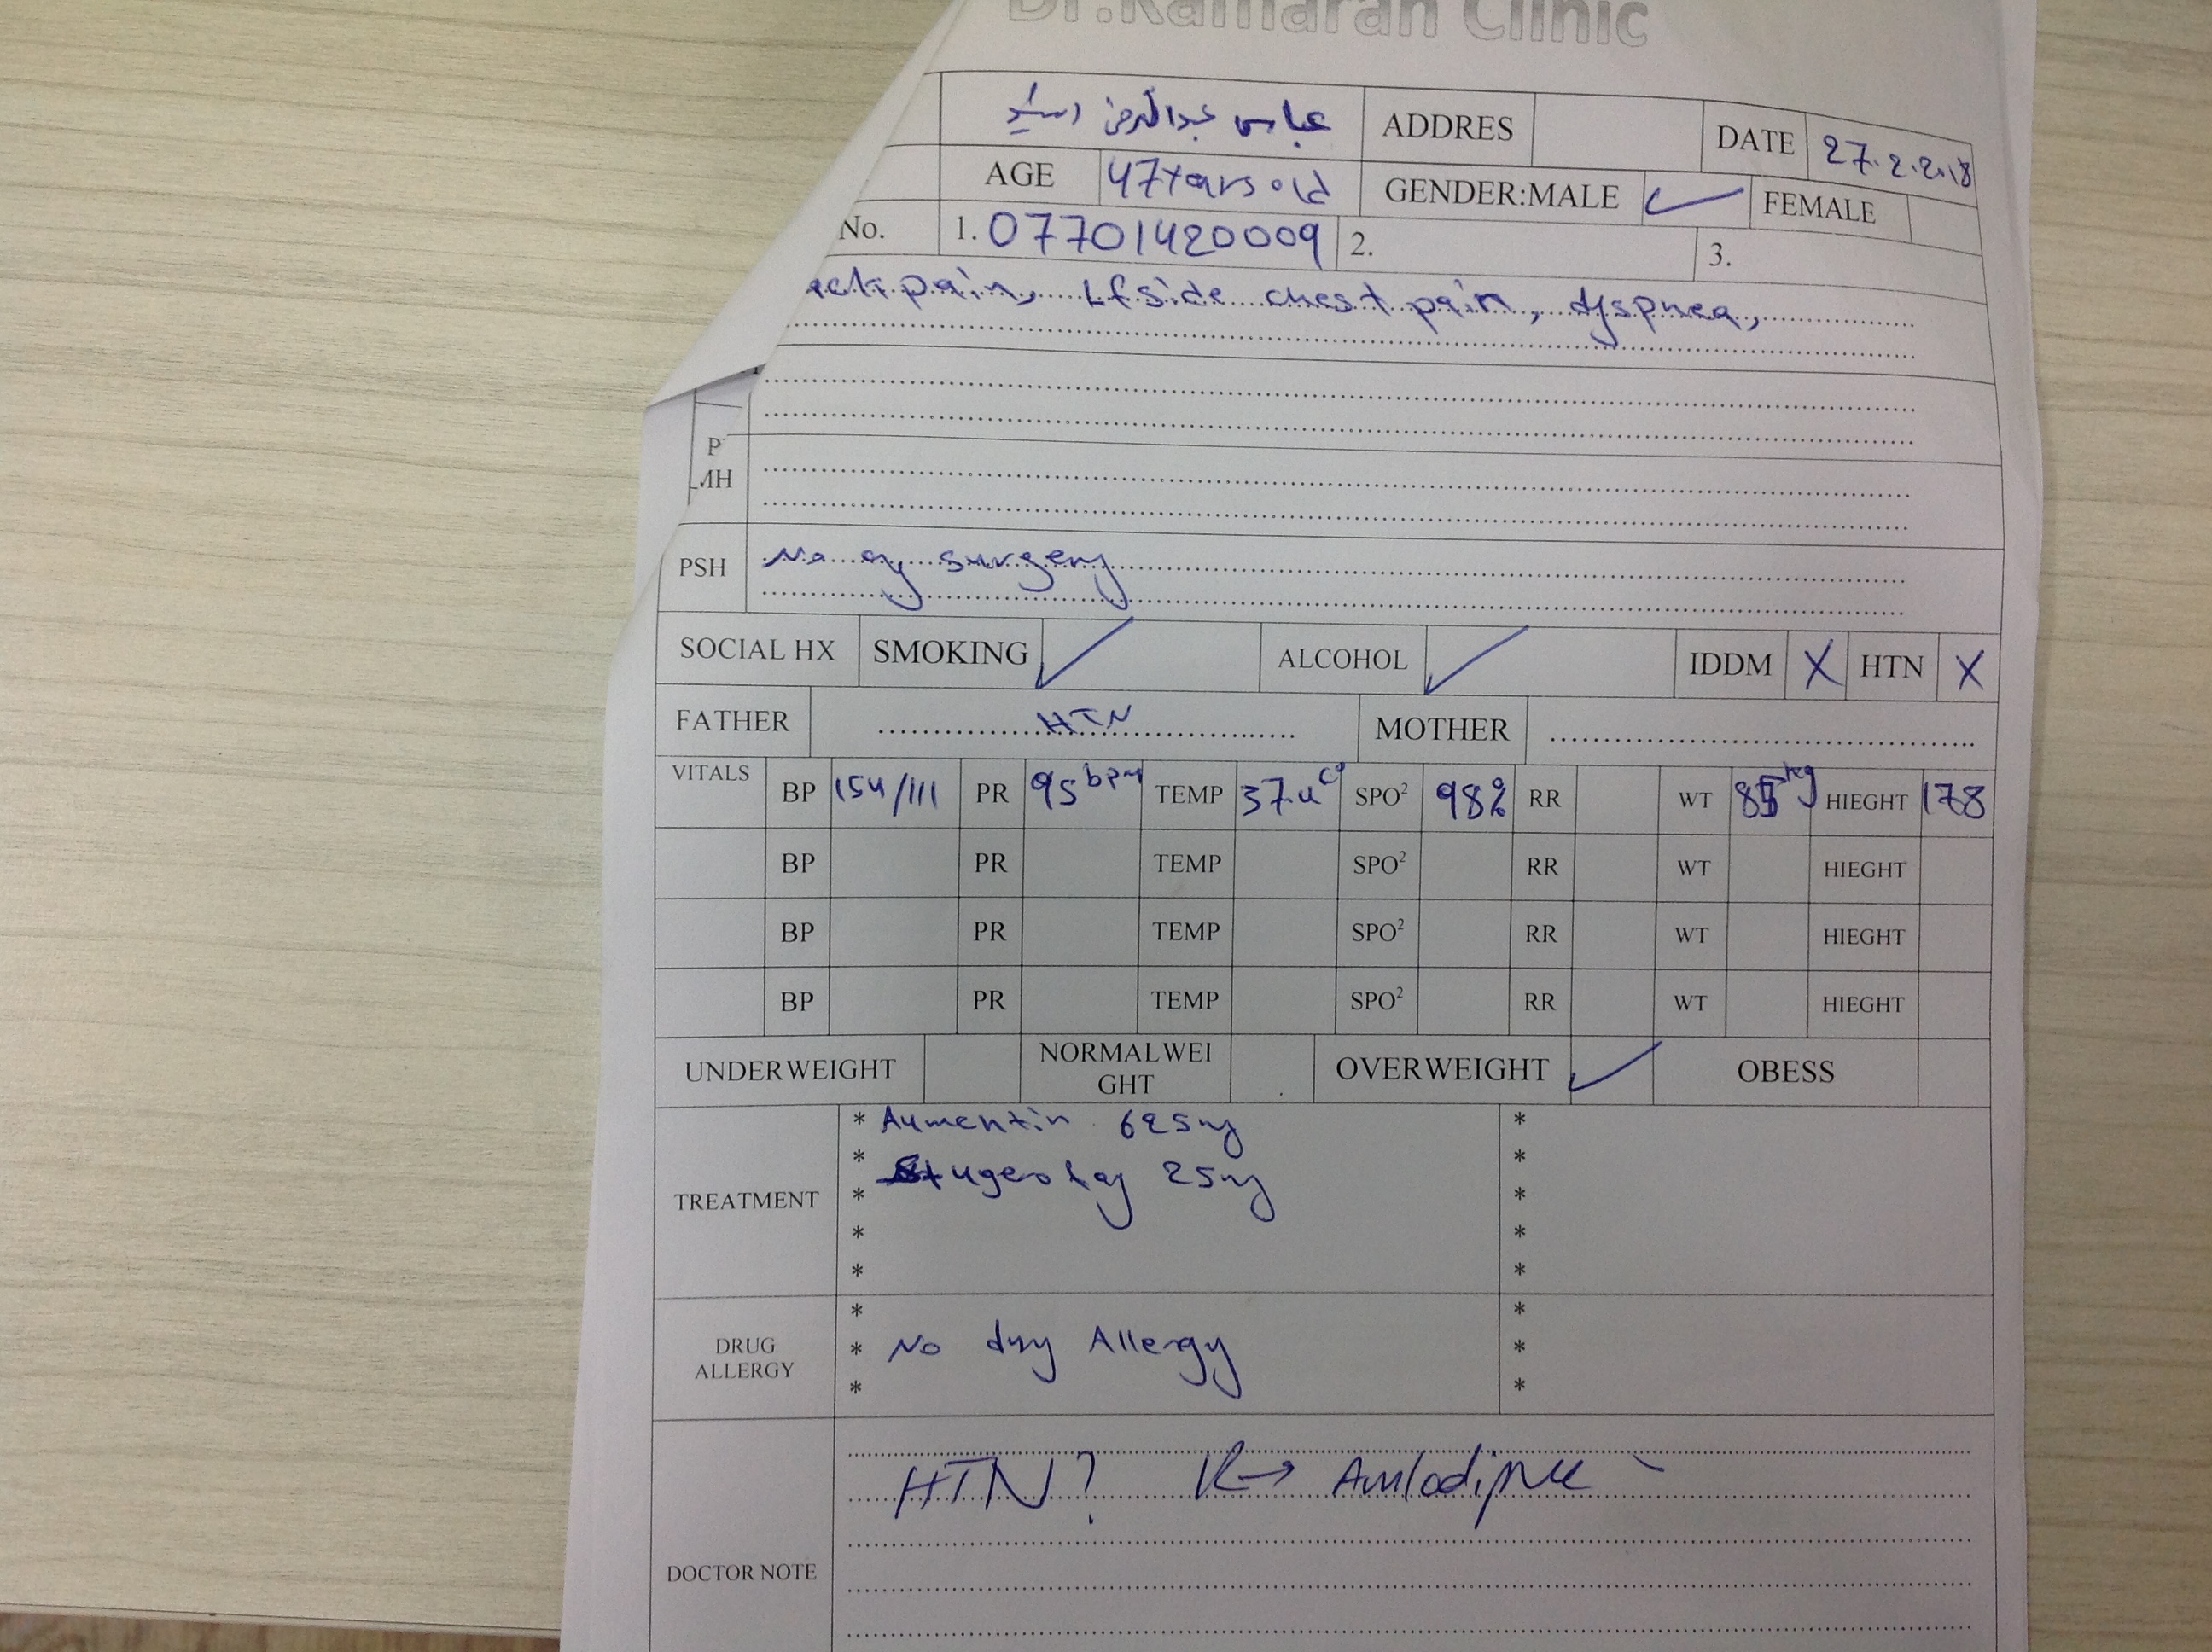 Dr.Kamaran Clinic
عباس عبدالرحمن ADDRES DATE 27.2.2018
AGE 47 years old GENDER:MALE ✓ FEMALE
No. 1. 07701420009 2. 3.
ack pain, Lf side chest pain, dyspnea,
P
MH
PSH No any surgery
SOCIAL HX SMOKING ✓ ALCOHOL ✓ IDDM X HTN X
FATHER HTN MOTHER
VITALS BP 154/111 PR 95 bpm TEMP 37.4 c° SPO² 98% RR WT 85 kg HIEGHT 178
BP PR TEMP SPO² RR WT HIEGHT
BP PR TEMP SPO² RR WT HIEGHT
BP PR TEMP SPO² RR WT HIEGHT
UNDERWEIGHT NORMALWEI
GHT OVERWEIGHT ✓ OBESS
TREATMENT * Aumentin 625mg *
* Stugero 25mg *
* *
* *
* *
DRUG
ALLERGY * *
* No drug Allergy *
* *
HTN? R→ Amlodipne
DOCTOR NOTE